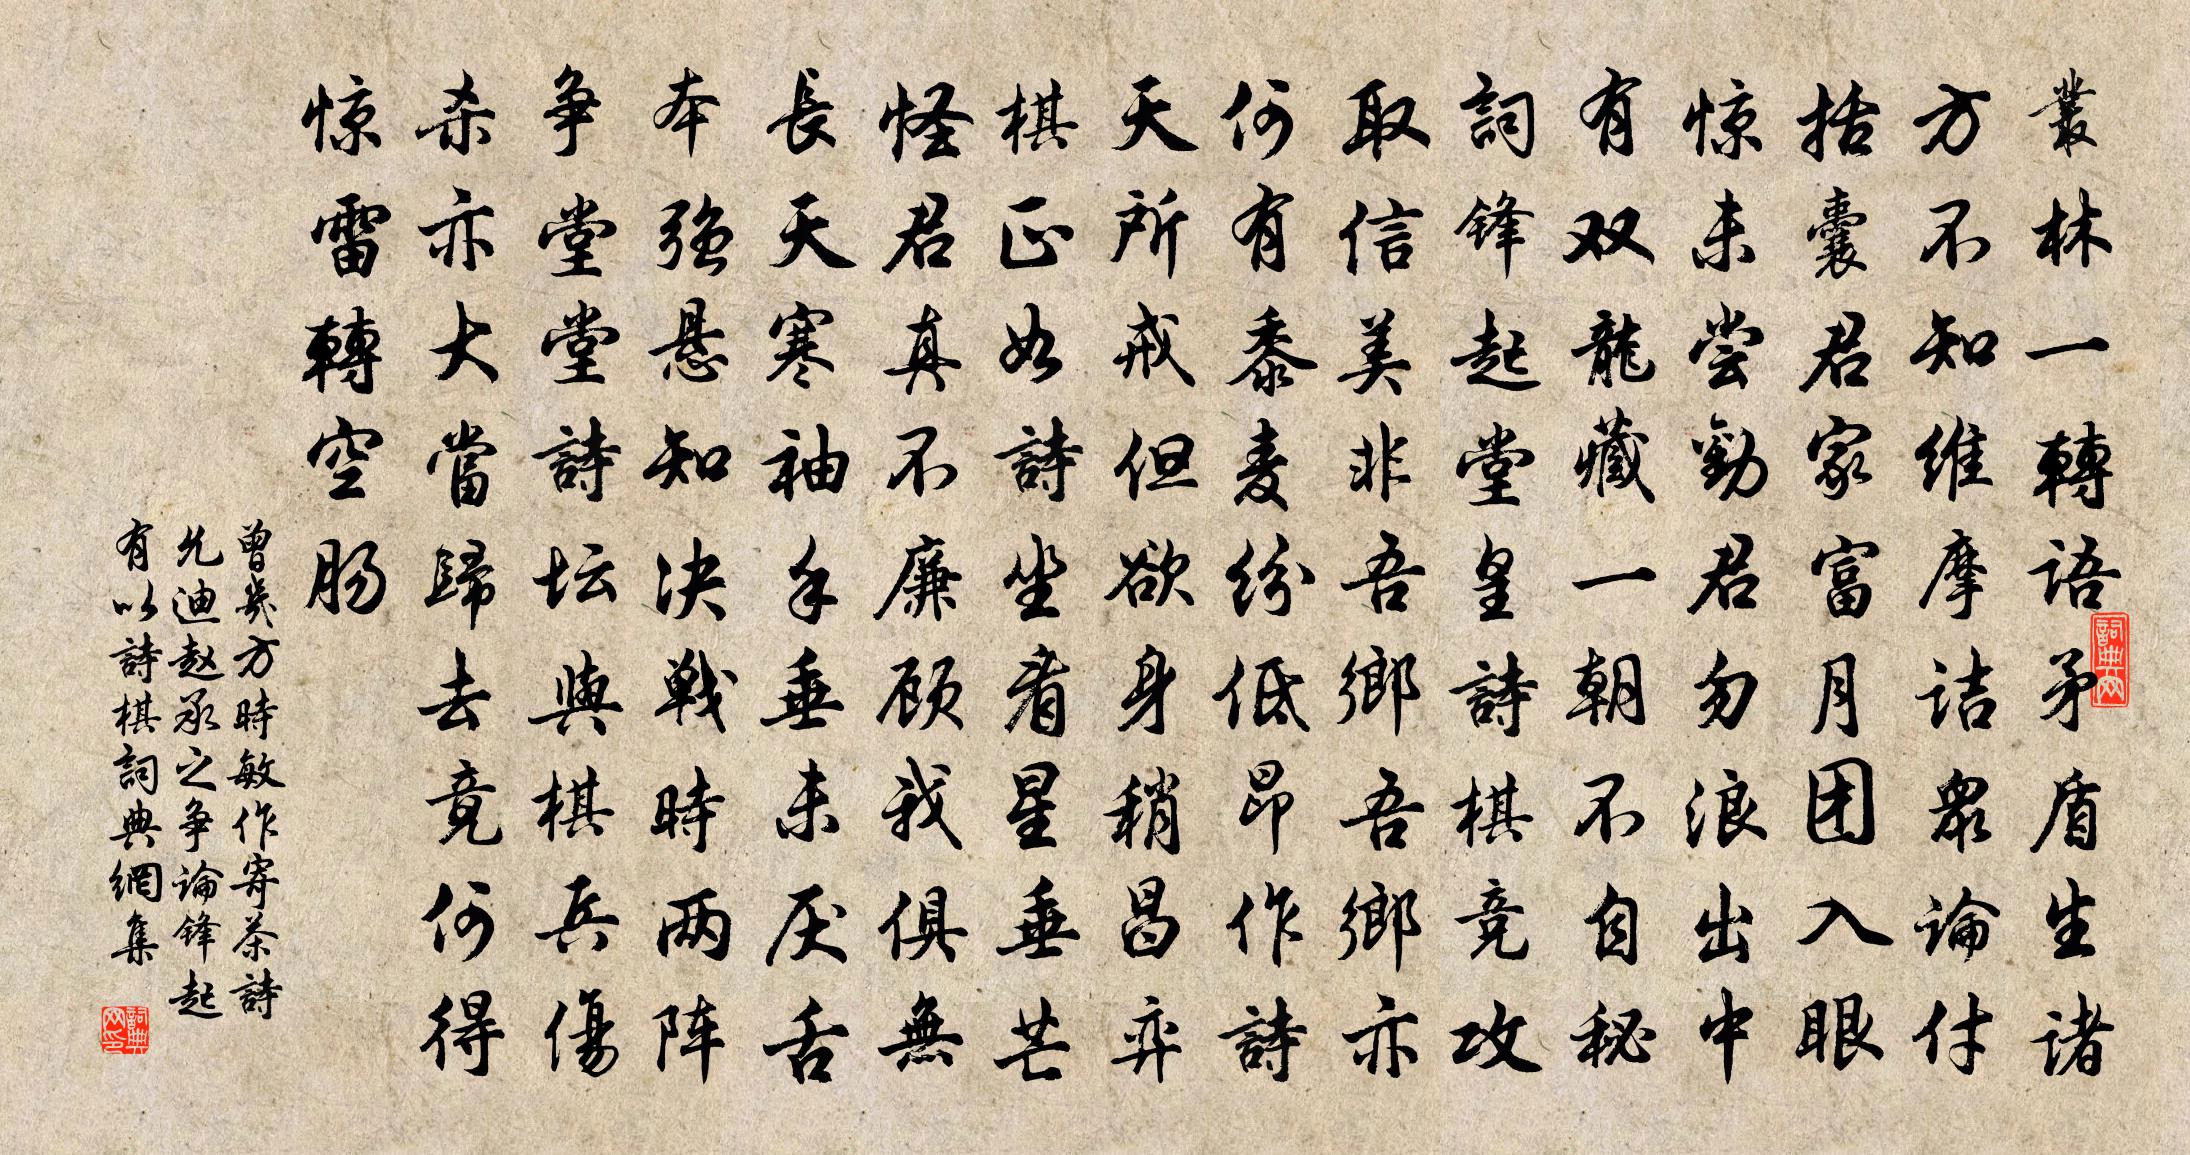 叢林一轉語矛盾生诸
方不知维摩诘眾論付
括囊君家富月团入眼
惊未尝勸君勿浪出中
有双龍藏一朝不自秘
詞锋起堂皇詩棋竞攻
取信美非吾鄉吾鄉亦
何有黍麦纷低昂作詩
天所戒但欲身稍昌弈
棋正如詩坐看星垂芒
怪君真不廉顾我俱無
長天寒袖手垂未厌舌
本强悬知决戦時两阵
争堂堂詩坛與棋兵傷
杀亦大當歸去竟何得
惊雷轉空肠
曾幾方時敏作寄茶詩
允迪赵承之争論锋起
有以詩棋詞典網集
詞典网
詞典网印